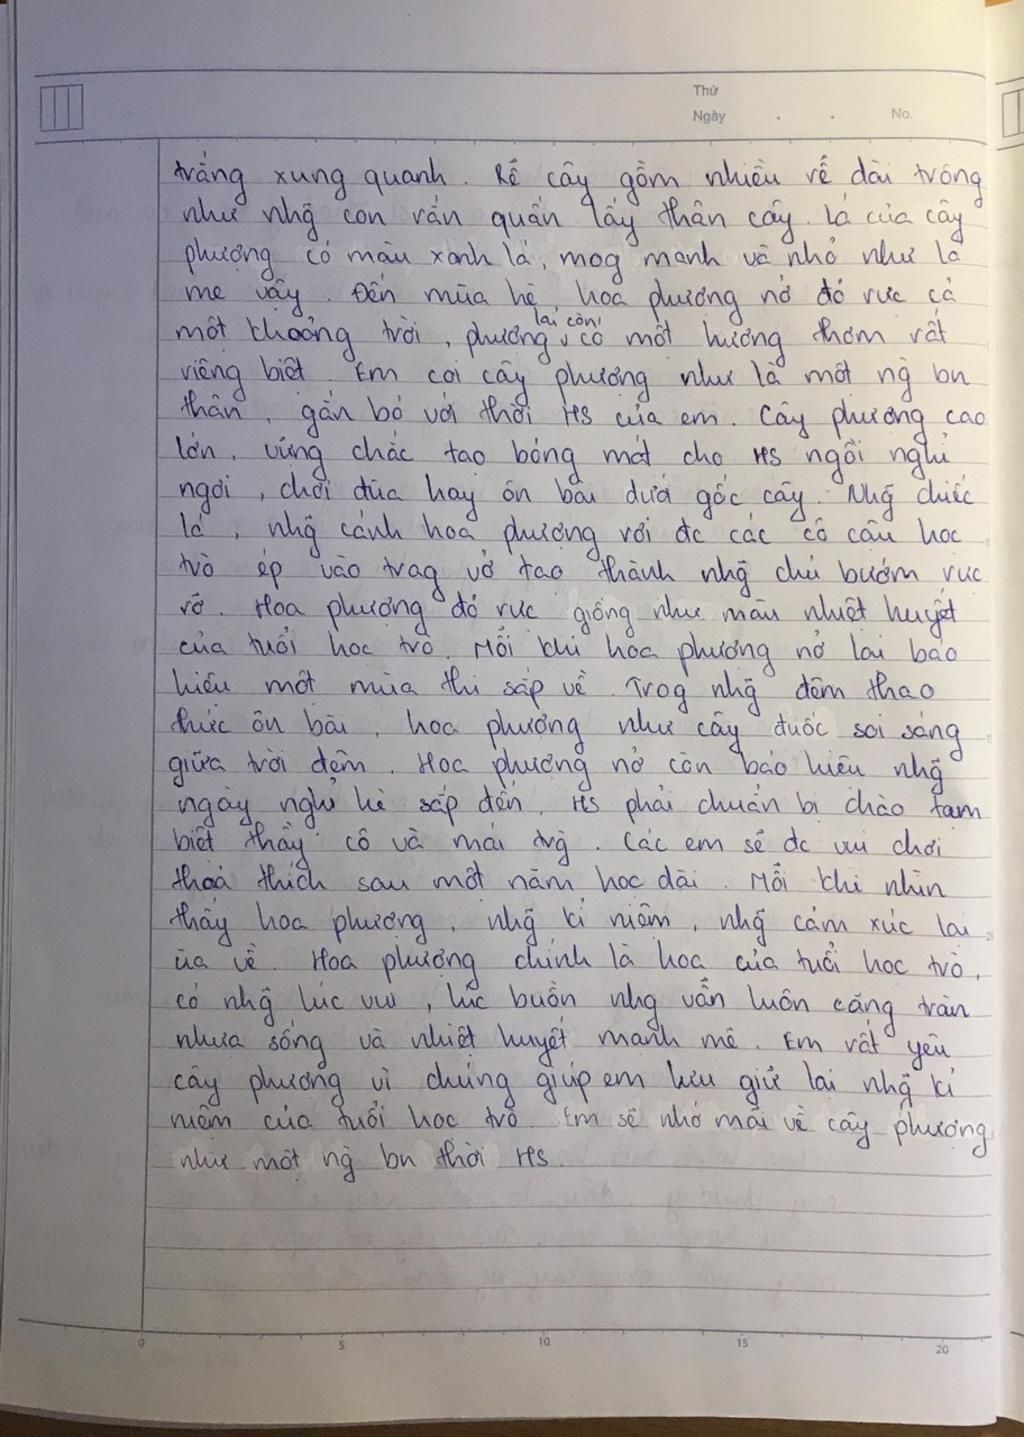 Thứ
Ngày . . No.
trắng xung quanh. Rễ cây gồm nhiều rễ dài trông
như nhg̃ con rắn quấn lấy thân cây. Lá của cây
phượng có màu xanh lá, mog manh và nhỏ như lá
me vậy. Đến mùa hè, hoa phượng nở đỏ rực cả
một khoảng trời, phượng lại còn có một hương thơm rất
riêng biệt. Em coi cây phượng như là một ng̀ bn
thân, gắn bó với thời HS của em. Cây phượng cao
lớn, vững chắc tạo bóng mát cho HS ngồi nghỉ
ngơi, chơi đùa hay ôn bài dưới gốc cây. Nhg̃ chiếc
lá, nhg̃ cánh hoa phượng rơi đc các cô cậu học
trò ép vào trag vở tạo thành nhg̃ chú bướm rực
rỡ. Hoa phượng đỏ rực giống như máu nhiệt huyết
của tuổi học trò. Mỗi khi hoa phượng nở lại báo
hiệu một mùa thi sắp về. Trog nhg̃ đêm thao
thức ôn bài, hoa phượng như cây đuốc soi sáng
giữa trời đêm. Hoa phượng nở còn báo hiệu nhg̃
ngày nghỉ hè sắp đến, HS phải chuẩn bị chào tạm
biệt thầy cô và mái trg̀. Các em sẽ đc vui chơi
thoả thích sau một năm học dài. Mỗi khi nhìn
thấy hoa phượng, nhg̃ kỉ niệm, nhg̃ cảm xúc lại
ùa về. Hoa phượng chính là hoa của tuổi học trò,
có nhg̃ lúc vui, lúc buồn nhg vẫn luôn căng tràn
nhựa sống và nhiệt huyết mạnh mẽ. Em rất yêu
cây phượng vì chúng giúp em lưu giữ lại nhg̃ kỉ
niệm của tuổi học trò. Em sẽ nhớ mãi về cây phượng
như một ng̀ bn thời HS.
0 5 10 15 20